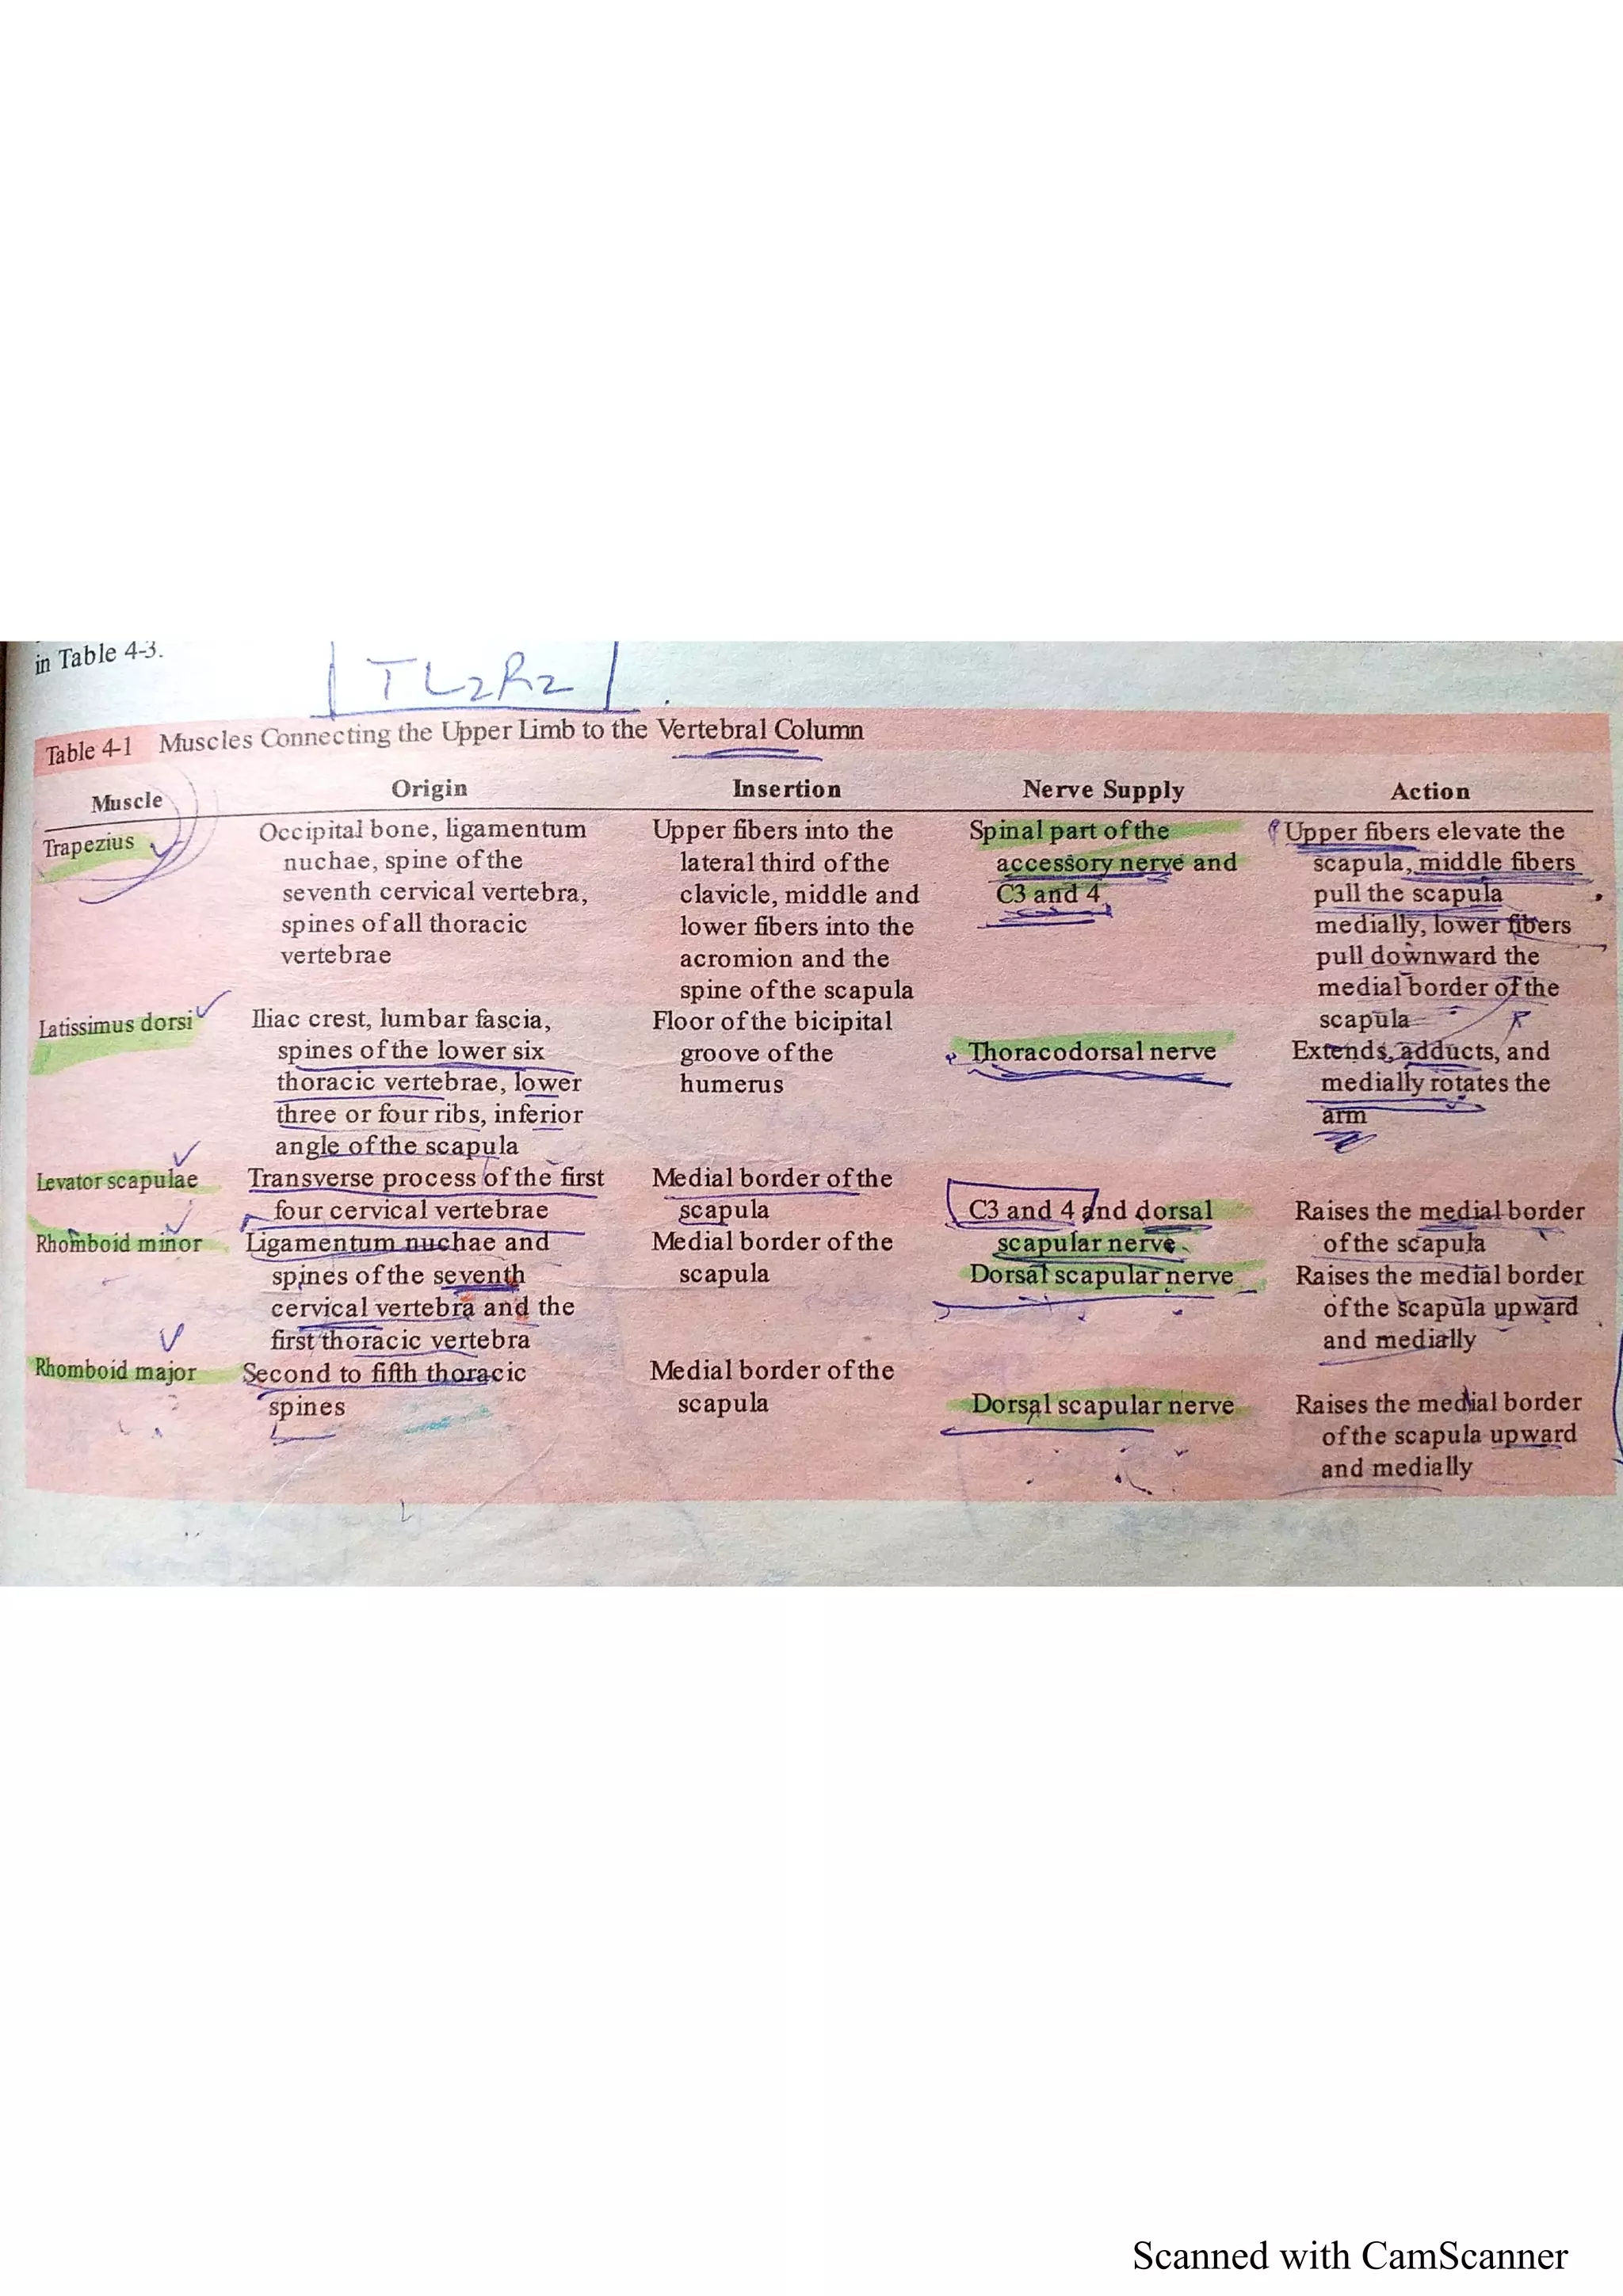 in Table 4-3.
TL2R2
Table 4-1 Muscles Connecting the Upper Limb to the Vertebral Column
Muscle Origin Insertion Nerve Supply Action
Trapezius Occipital bone, ligamentum Upper fibers into the Spinal part of the Upper fibers elevate the
nuchae, spine of the lateral third of the accessory nerve and scapula, middle fibers
seventh cervical vertebra, clavicle, middle and C3 and 4 pull the scapula
spines of all thoracic lower fibers into the medially, lower fibers
vertebrae acromion and the pull downward the
spine of the scapula medial border of the
Latissimus dorsi Iliac crest, lumbar fascia, Floor of the bicipital scapula
spines of the lower six groove of the Thoracodorsal nerve Extends, adducts, and
thoracic vertebrae, lower humerus medially rotates the
three or four ribs, inferior arm
angle of the scapula
Levator scapulae Transverse process of the first Medial border of the
four cervical vertebrae scapula C3 and 4 and dorsal Raises the medial border
Rhomboid minor Ligamentum nuchae and Medial border of the scapular nerve of the scapula
spines of the seventh scapula Dorsal scapular nerve Raises the medial border
cervical vertebra and the of the scapula upward
first thoracic vertebra and medially
Rhomboid major Second to fifth thoracic Medial border of the
spines scapula Dorsal scapular nerve Raises the medial border
of the scapula upward
and medially
Scanned with CamScanner